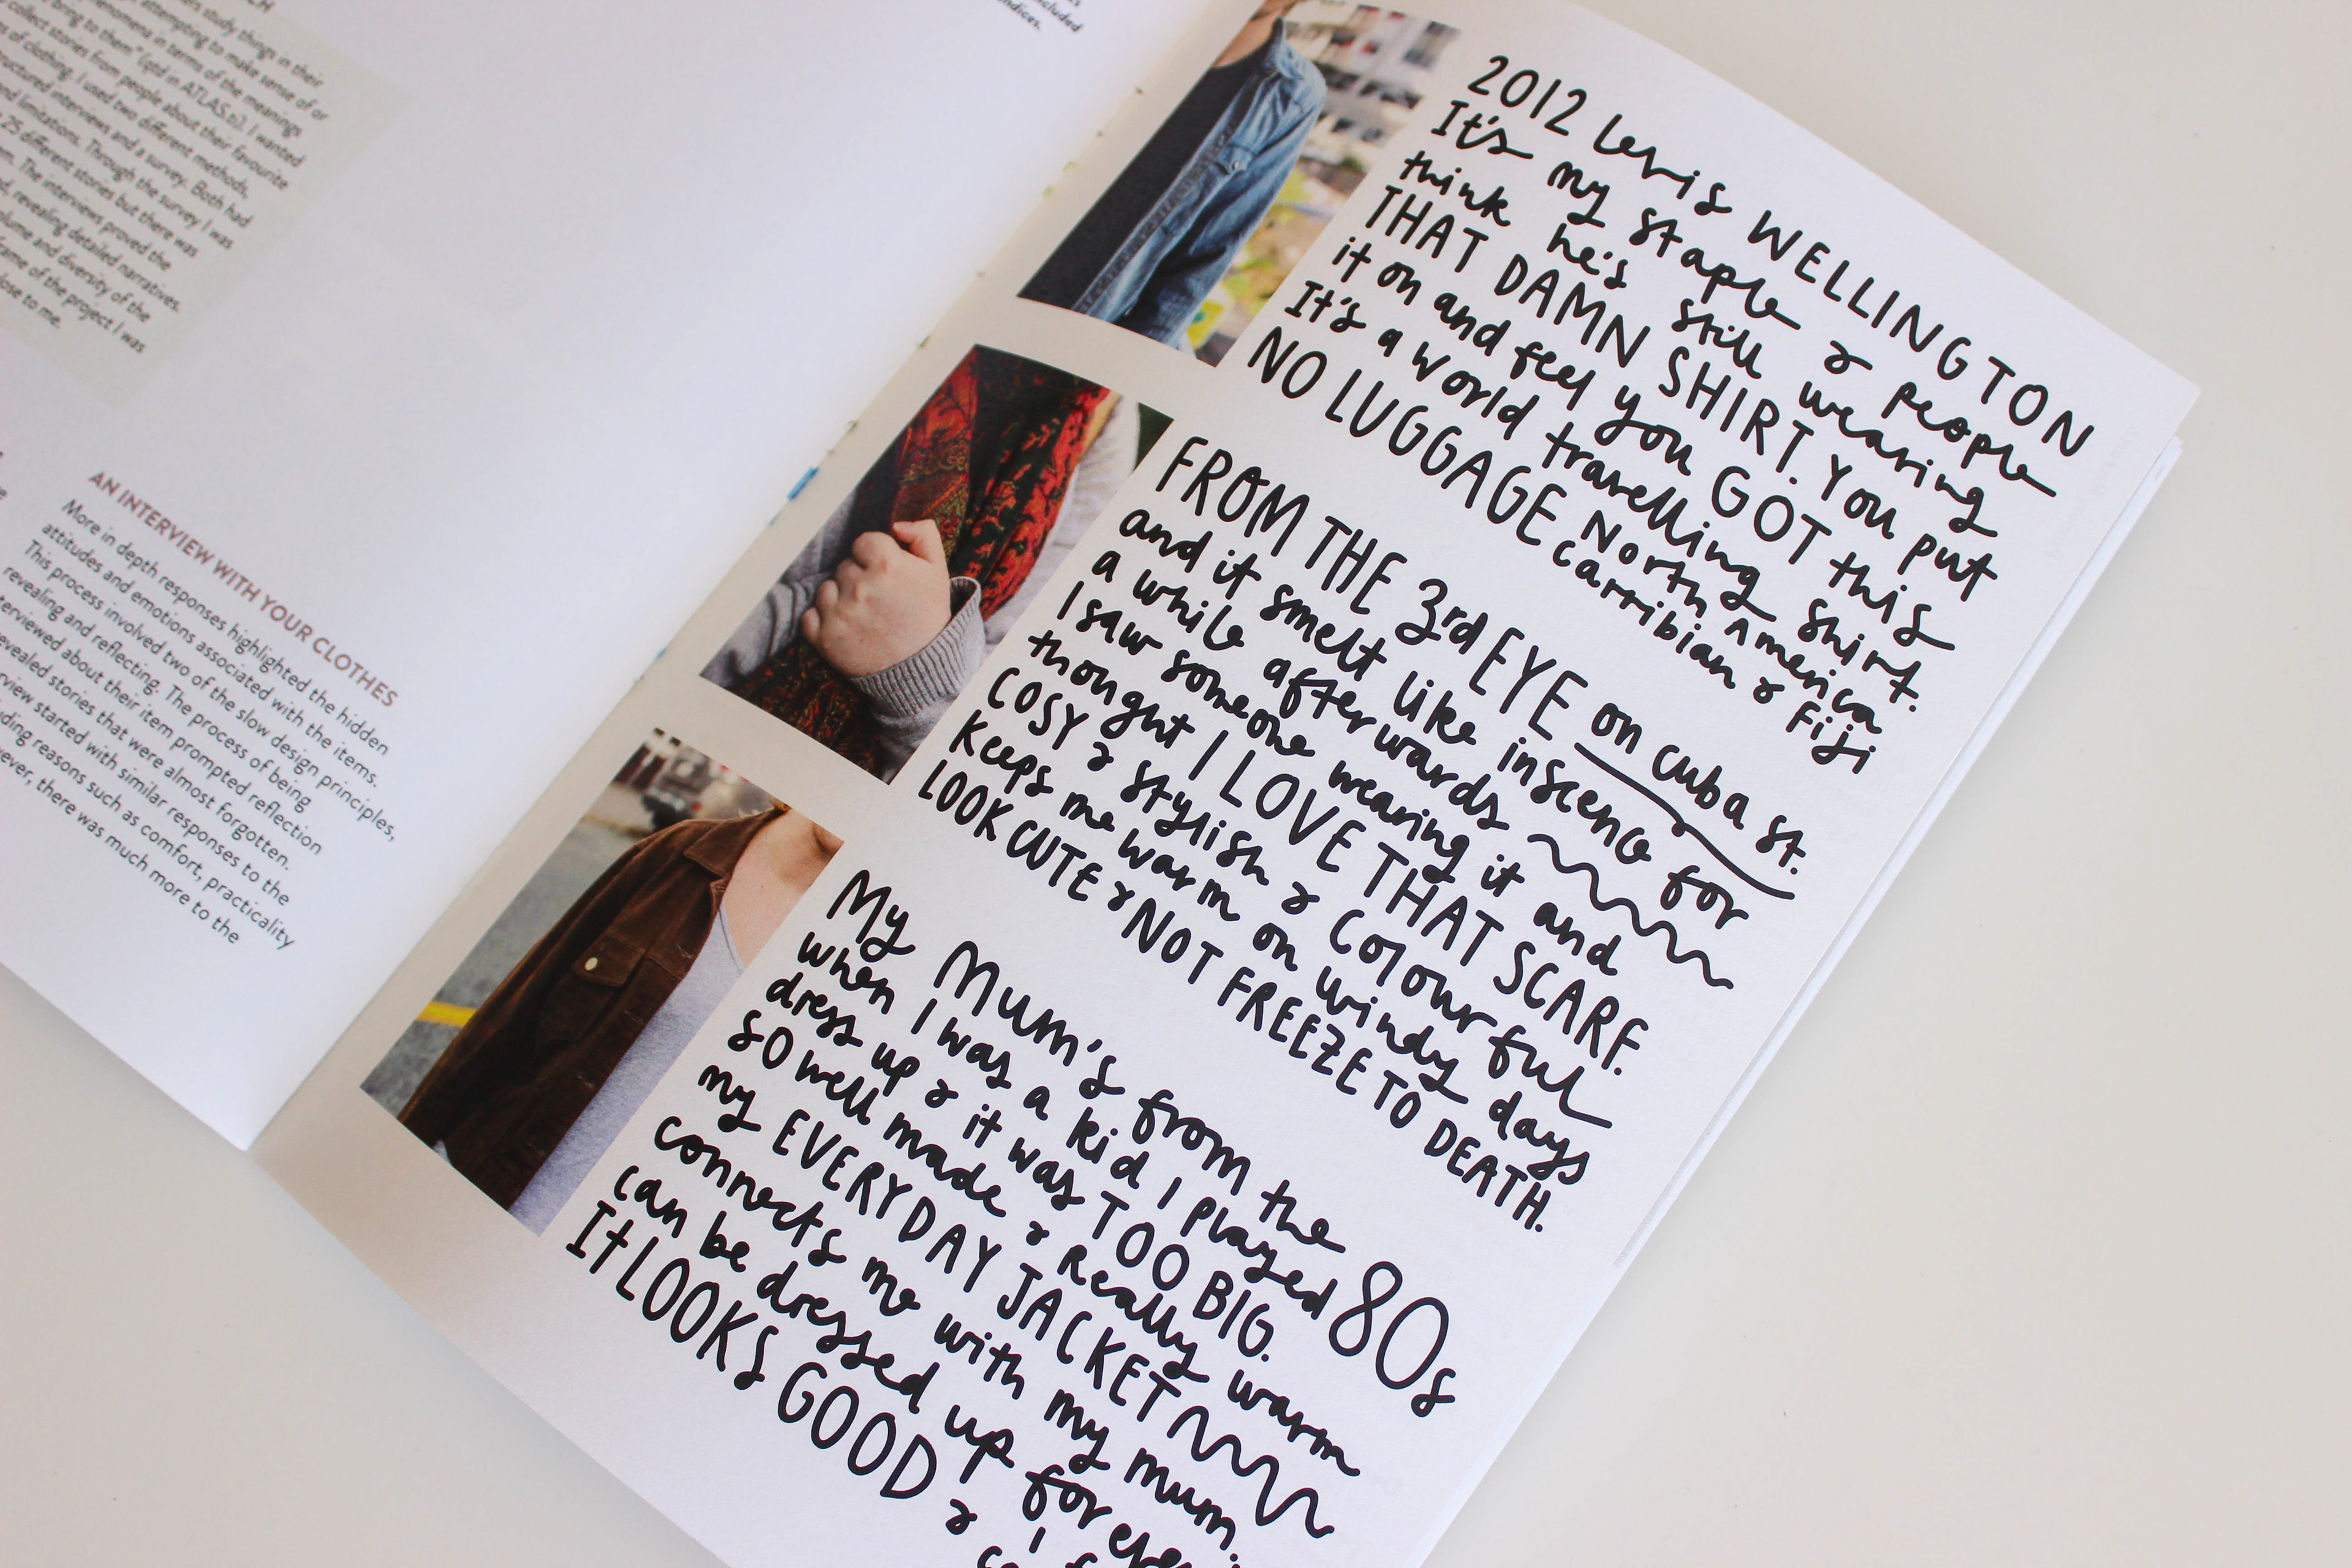 study things in their
attempting to make sense of or
phenomena in terms of the meanings
bring to them" (qtd in ATLAS.ti). I wanted
collect stories from people about their favourite
of clothing. I used two different methods,
structured interviews and a survey. Both had
and limitations. Through the survey I was
25 different stories but there was
The interviews proved the
revealing detailed narratives.
volume and diversity of the
frame of the project I was
close to me.
AN INTERVIEW WITH YOUR CLOTHES
More in depth responses highlighted the hidden
attitudes and emotions associated with the items.
This process involved two of the slow design principles,
revealing and reflecting. The process of being
interviewed about their item prompted reflection
revealed stories that were almost forgotten.
started with similar responses to the
reasons such as comfort, practicality
there was much more to the
2012 Levis WELLINGTON
It's my staple & people
think he's still wearing
THAT DAMN SHIRT. You put
it on and feel you GOT this
It's a world travelling shirt.
NO LUGGAGE North America
carribian & Fiji
FROM THE 3rd EYE on cuba st.
and it smelt like inscence for
a while afterwards
I saw someone wearing it and
thought I LOVE THAT SCARF.
COSY & stylish & colourful
keeps me warm on windy days
LOOK CUTE & NOT FREEZE TO DEATH.
My Mum's from the 80s
when I was a kid I played
dress up & it was TOO BIG.
SO well made & really warm
my EVERYDAY JACKET
connects me with my mum.
can be dressed up for
It LOOKS GOOD &